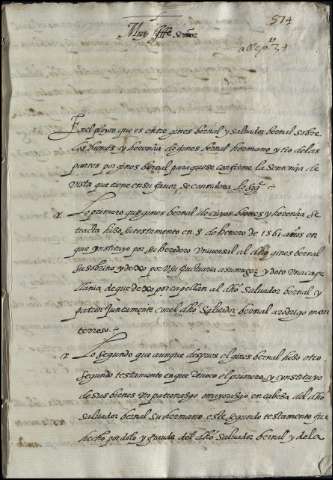 574
Muy Ille señor
En el pleyto que es entre gines bernal y salvador bernal sobre
los bienes y herencia de gines bernal hermano y tio de las
partes por gines bernal para que se confirme la sentencia de
vista que tiene en su favor se considera lo sigte
Lo primero que gines bernal de cuyos bienes y herencia se
tracta hizo su testamento en 8 de henero de 1561 años en
que ynstituyo por su heredero universal al dho gines bernal
su sobrino y dexo por
llania de que dexo por capellan al dho Salvador bernal y
patron juntamente con el dho Salvador bernal
Lo segundo que aunque despues el gines bernal hizo otro
segundo testamento en que revoco el primero y constituyo
de sus bienes un patronazgo en cabeça del dho
salvador bernal su hermano este segundo testamento fue
hecho por dolo y fraude del dho Salvador bernal y de la